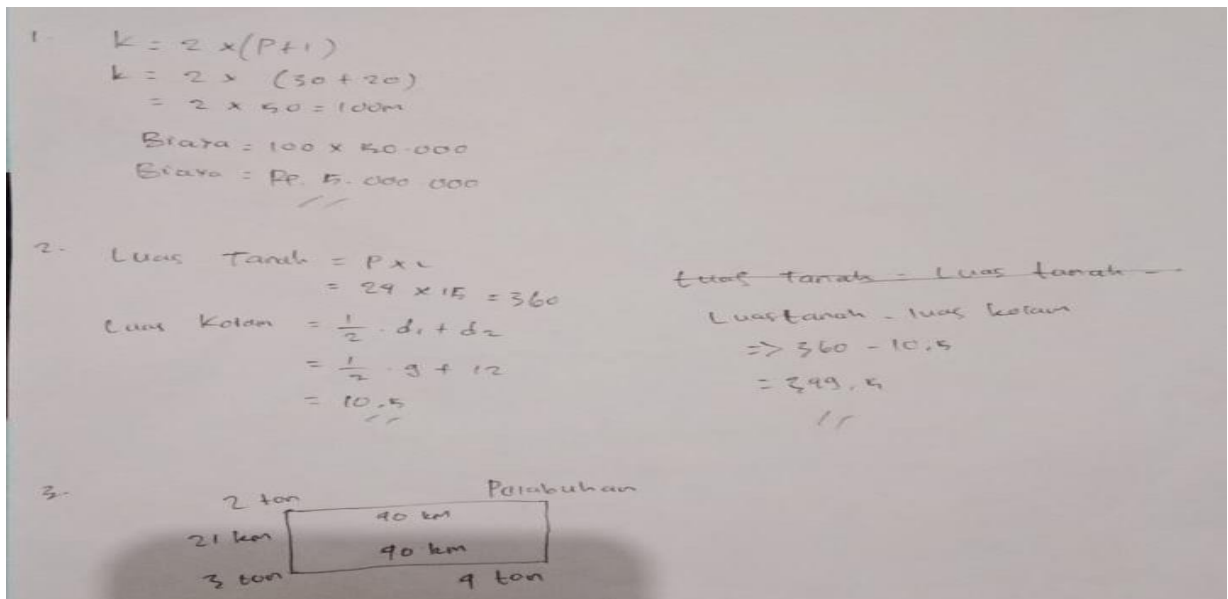 1. K = 2 x (P+1)
k = 2 x (30 + 20)
= 2 x 50 = 100m
Biaya = 100 x 50.000
Biaya = Rp. 5.000 000
2. Luas Tanah = P x L
= 24 x 15 = 360
Luas Kolam = 1/2 . d1 + d2
= 1/2 . 9 + 12
= 10.5
Luas tanah = Luas tanah -
Luas tanah - luas kolam
=> 360 - 10,5
= 349,5
3. 2 ton Pelabuhan
40 km
21 km
40 km
3 ton 4 ton